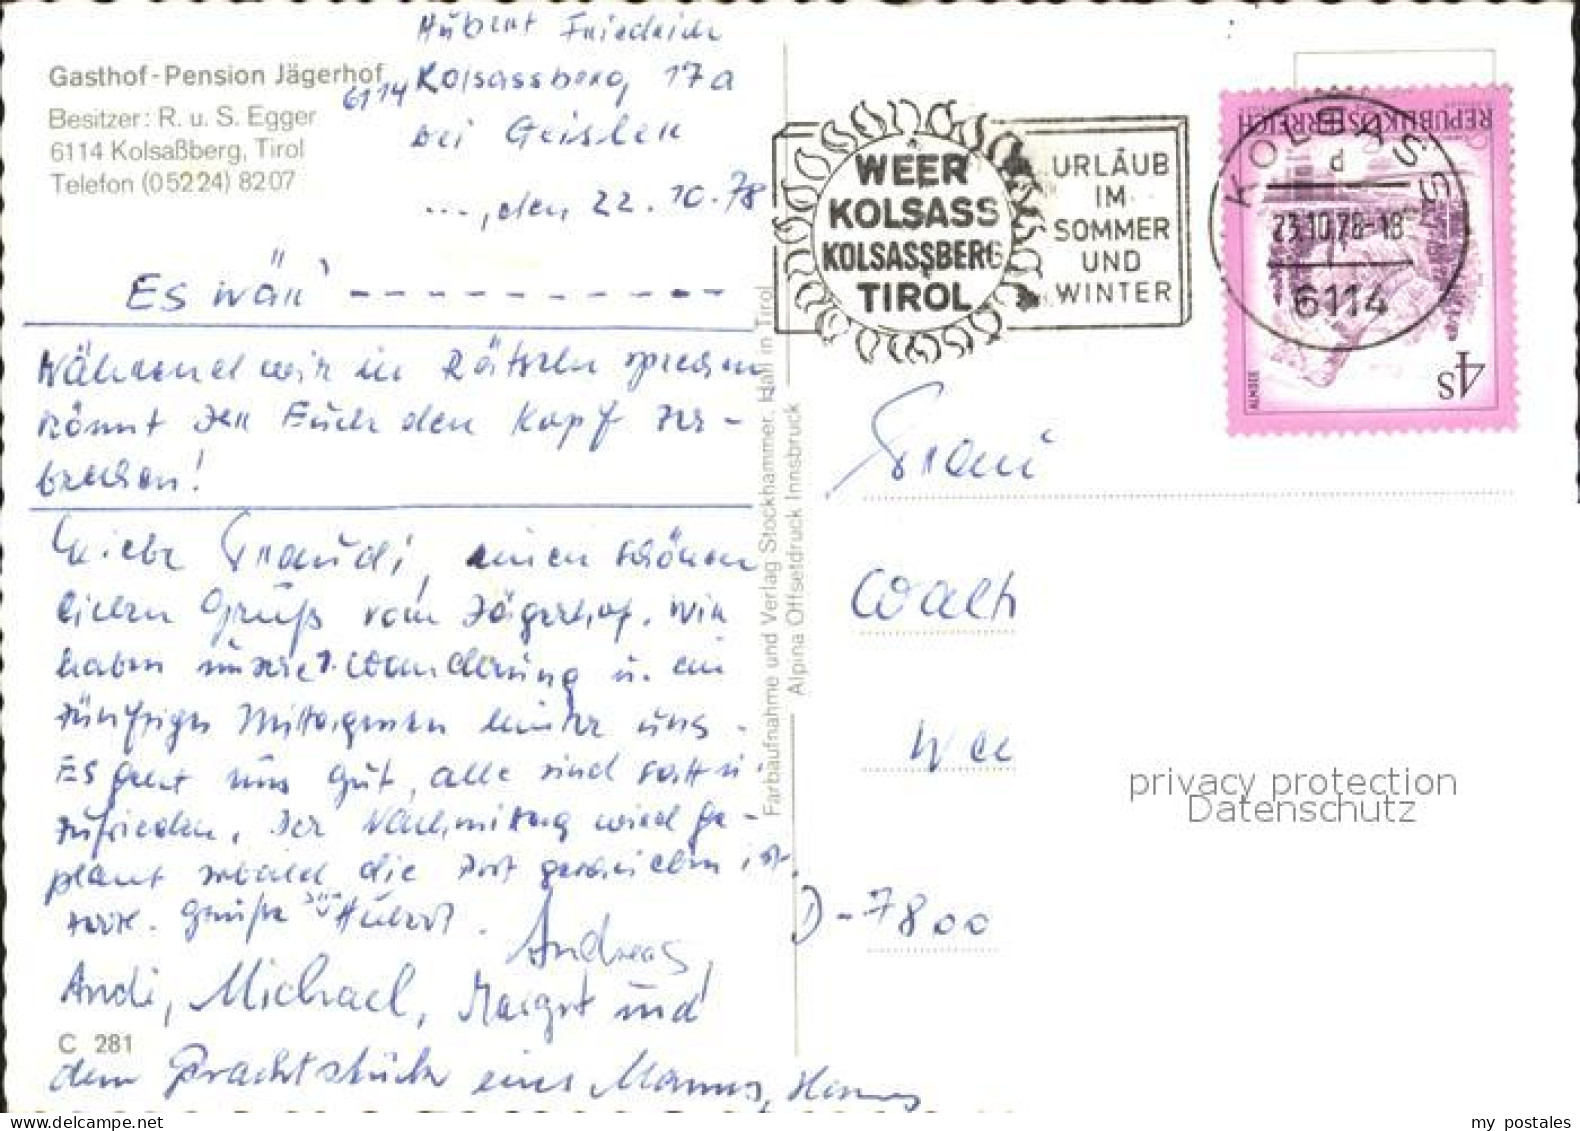 Gasthof-Pension Jägerhof
Besitzer: R. u. S. Egger
6114 Kolsaßberg, Tirol
Telefon (05224) 8207
Hubert Friedrich
6114 Kolsassberg 17a
bei Geisler
..., den 22.10.78
Es wär' -----------
Während wir in Rätseln sprechen
könnt Ihr Euch den Kopf zer-
brechen!
Liebe Traudi, einen schönen
lieben Gruß vom Jägerhof. Wir
haben unsere 1. Wanderung u. ein
zünftiges Mittagessen hinter uns.
Es geht uns gut, alle sind satt u.
zufrieden. Der Nachmittag wird ge-
plant sobald die Post geschrieben ist.
Grüße Hubert.
Andreas,
Andi, Michael, Margot und
C 281
dem Prachtstück eines Mannes, Hannes
Farbaufnahme und Verlag Stockhammer, Hall in Tirol
Alpina Offsetdruck Innsbruck
WEER
KOLSASS
KOLSASSBERG
TIROL
URLAUB
IM
SOMMER
UND
WINTER
KOLSASS
d
23.10.78-18
6114
REPUBLIK ÖSTERREICH
ALMSEE
4S
D-7800
privacy protection
Datenschutz
my postales